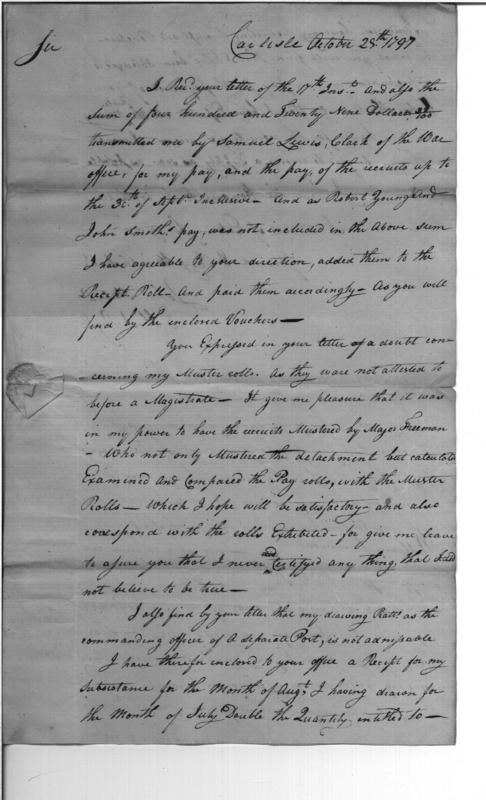 Carlisle October 28th 1797
Sir
I Recd. your letter of the 17th Inst. And also the
Sum of four hundred and Twenty Nine Dollars 22/100
transmitted me by Samuel Lewis, Clark of the War
office, for my pay, and the pay, of the recruits up to
the 30th of Sept. Inclusive — And as Robert Young and
John Smiths pay, was not included in the Above sum
I have agreable to your direction, added them to the
Receipt Roll — And paid them accordingly — As you will
find by the inclosed Vouchers —
You Expressed in your letter of a doubt con-
-cerning my Muster rolls. As they ware not attested to
before a Magistrate — It give me pleasure that it was
in my power to have the recruits Mustered by Major Freeman
- Who not only Mustered the detachment but calculated
Examined and Compared the Pay rolls, with the Muster
Rolls — Which I hope will be satisfactory — and also
corespond with the rolls Exhibited — for give me leave
to asure you that I never Certifyed any thing, that I did
not believe to be true —
I also find by your letter that my drawing Rats. as the
commanding officer of A separate Post, is not admissable
I have therefor inclosed to your office a Recept for my
Subsistance for the Month of Augt. I having drawn for
the Month of July Double the Quantity intitled to —